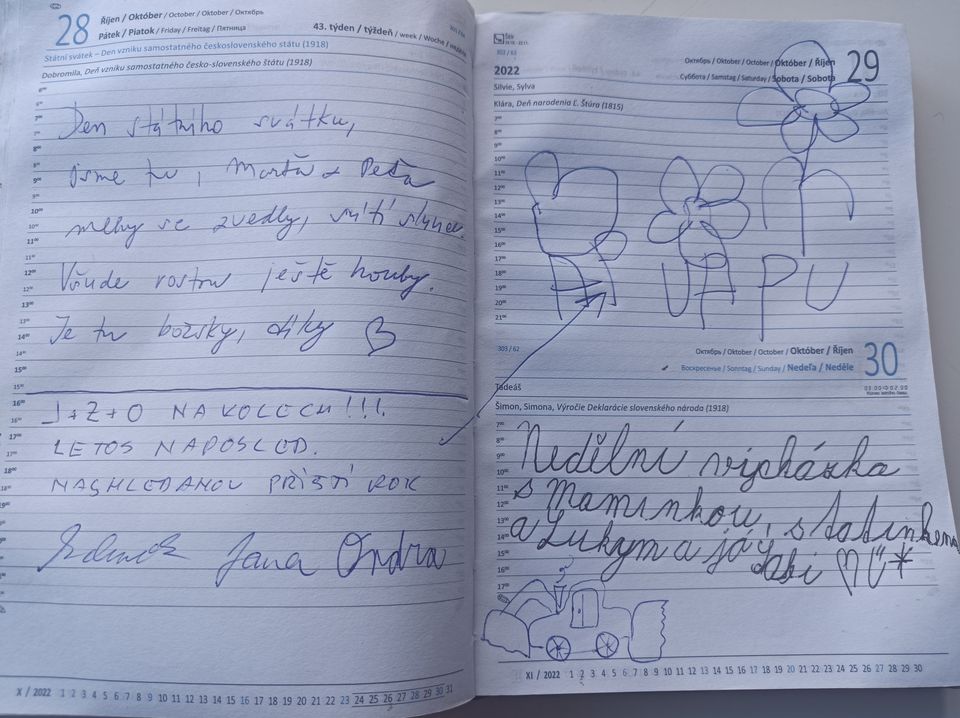 28
Říjen / Október / October / Oktober / Октябрь
Pátek / Piatok / Friday / Freitag / Пятница
43. týden / týždeň / week / Woche / неделя
301 / 64
Státní svátek – Den vzniku samostatného československého státu (1918)
Dobromila, Deň vzniku samostatného česko-slovenského štátu (1918)
Den státního svátku,
jsme tu, Marťa a Peťa
mlhy se zvedly, svítí slunce.
Všude rostou ještě houby.
Je tu božsky, díky
J+Z+O NA KOLECH!!!.
LETOS NAPOSLED.
NASHLEDANOU PŘÍŠTÍ ROK
Zdeněk Jana Ondra
X / 2022 1 2 3 4 5 6 7 8 9 10 11 12 13 14 15 16 17 18 19 20 21 22 23 24 25 26 27 28 29 30 31
302 / 63
2022
Октябрь / Oktober / October / Október / Říjen
29
Суббота / Samstag / Saturday / Sobota / Sobota
Silvie, Sylva
Klára, Deň narodenia Ľ. Štúra (1815)
303 / 62
Октябрь / Oktober / October / Október / Říjen
30
Воскресенье / Sonntag / Sunday / Nedeľa / Neděle
Tadeáš
Šimon, Simona, Výročie Deklarácie slovenského národa (1918)
Nedělní vycházka
s Maminkou, s tatínkem
a Lukym a já
XI / 2022 1 2 3 4 5 6 7 8 9 10 11 12 13 14 15 16 17 18 19 20 21 22 23 24 25 26 27 28 29 30